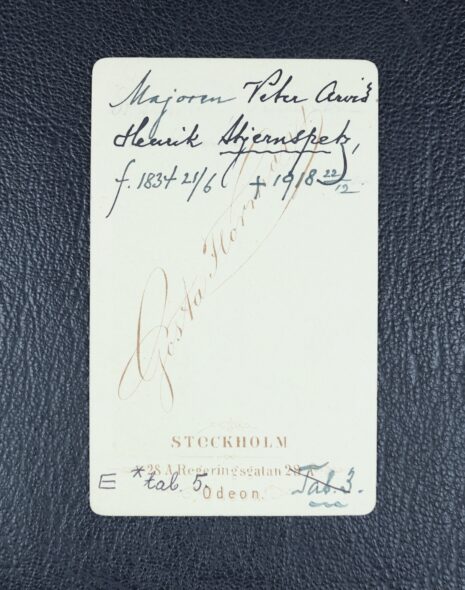 Majoren Peter Arvid
Henrik Stjernspetz,
f. 1834 21/6 + 1918 22/12
Gösta Florman
STOCKHOLM
28 A Regeringsgatan 28 A
Odeon.
E * tab. 5. Tab. 3.